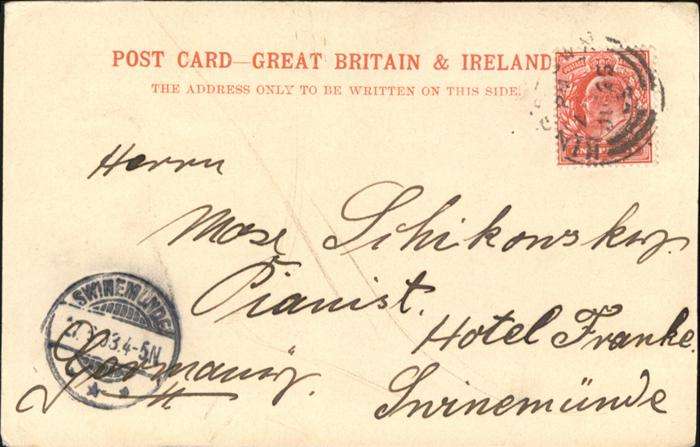 POST CARD—GREAT BRITAIN & IRELAND
THE ADDRESS ONLY TO BE WRITTEN ON THIS SIDE.
Herrn
Schikowsky.
Pianist.
Hotel Franke.
Germany.
Swinemünde
SWINEMÜNDE
4-5N